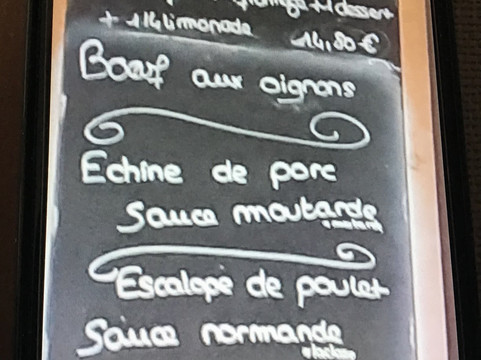 + 1 dessert
+ 1/4 limonade 14,80 €
Boeuf aux oignons
Echine de porc
Sauce moutarde
Escalope de poulet
Sauce normande